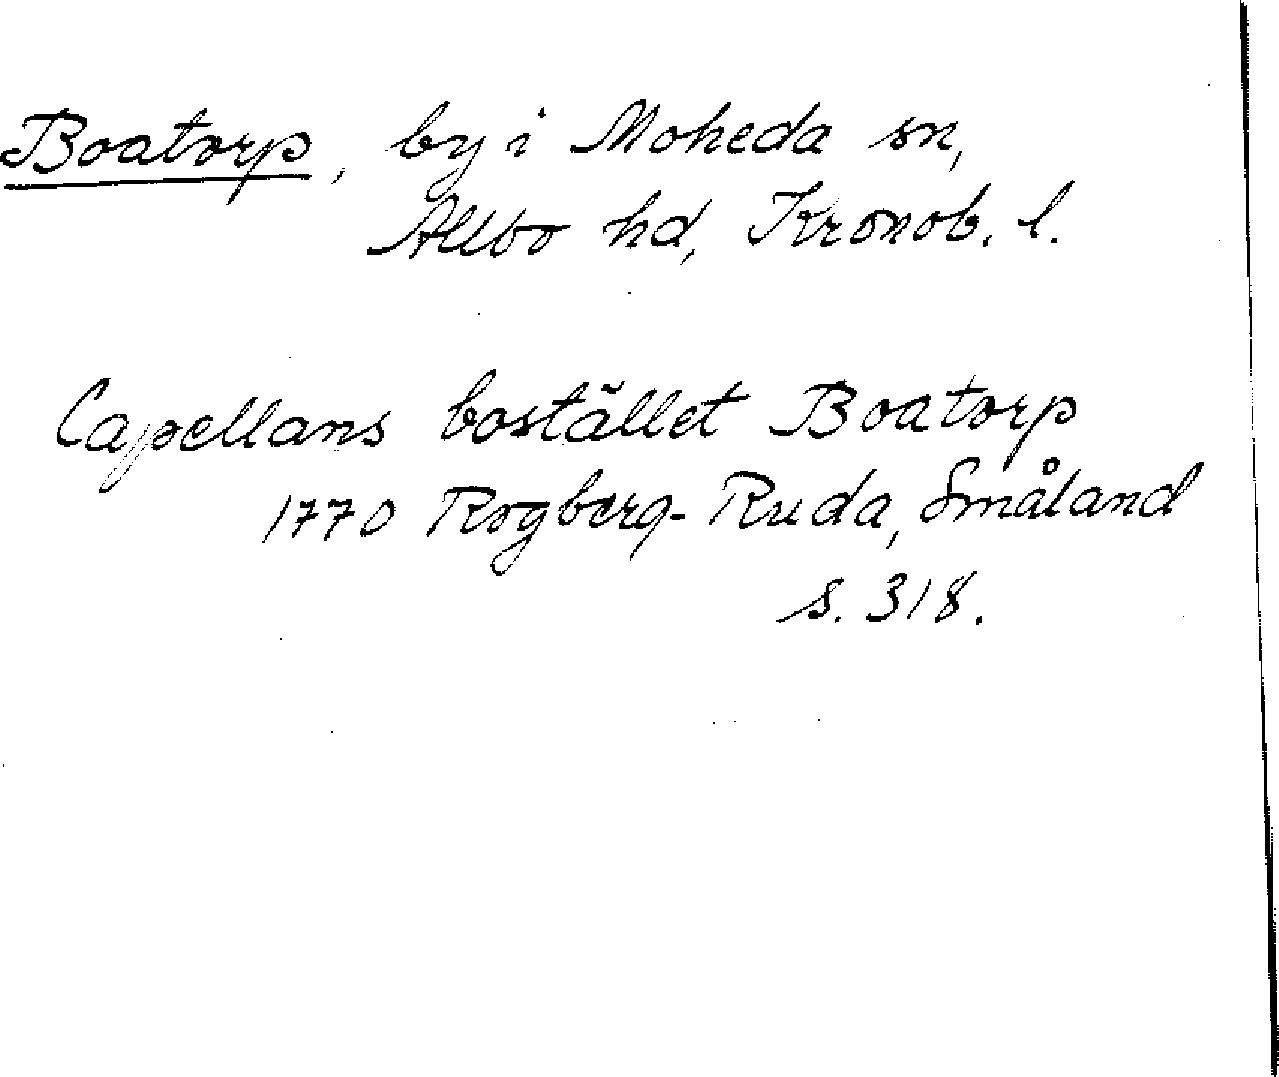 Boatorp, by i Moheda sn,
Allbo hd, Kronob. l.
Capellans bostället Boatorp
1770 Rogberg-Ruda, Småland
s. 318.